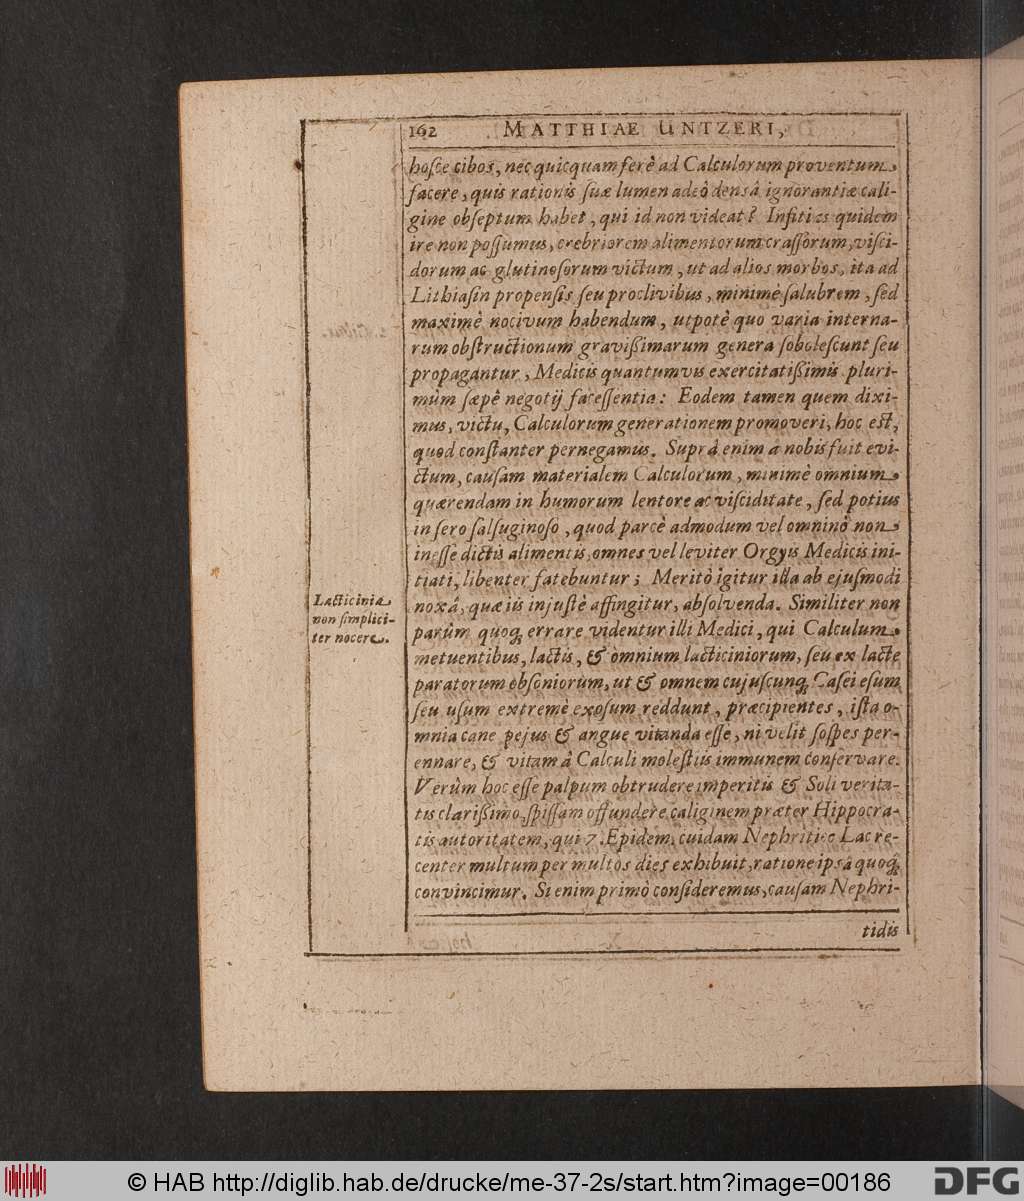 162 MATTHIAE UNTZERI,
hosce cibos, nec quicquam ferè ad Calculorum proventum
facere, quis rationis suæ lumen adeò densâ ignorantiæ cali-
gine obseptum habet, qui id non videat? Infitias quidem
ire non possumus, crebriorem alimentorum crassorum, visci-
dorum ac glutinosorum victum, ut ad alios morbos, ita ad
Lithiasin propensis seu proclivibus, minimè salubrem, sed
maximè nocivum habendum, utpotè quo varia interna-
rum obstructionum gravißimarum genera sobolescunt seu
propagantur, Medicis quantumvis exercitatißimis pluri-
mùm sæpè negotij facessentia: Eodem tamen quem dixi-
mus, victu, Calculorum generationem promoveri, hoc est,
quod constanter pernegamus. Suprà enim à nobis fuit evi-
ctum, causam materialem Calculorum, minimè omnium
quærendam in humorum lentore ac visciditate, sed potius
in sero salsuginoso, quod parcè admodum vel omninò non
inesse dictis alimentis, omnes vel leviter Orgyis Medicis ini-
tiati, libenter fatebuntur; Meritò igitur illa ab ejusmodi
noxâ, quæ iis injustè affingitur, absolvenda. Similiter non
Lacticinia
non simplici-
ter nocere.
parùm quoq; errare videntur illi Medici, qui Calculum
metuentibus, lactis, & omnium lacticiniorum, seu ex lacte
paratorum obsoniorum, ut & omnem cujuscunq; Casei esum
seu usum extremè exosum reddunt, præcipientes, ista o-
mnia cane pejus & angue vitanda esse, ni velit sospes per-
ennare, & vitam à Calculi molestiis immunem conservare.
Verùm hoc esse palpum obtrudere imperitis & Soli verita-
tis clarißimo, spissam offundere caliginem præter Hippocra-
tis autoritatem, qui 7. Epidem. cuidam Nephritico Lac re-
center multum per multos dies exhibuit, ratione ipsâ quoq;
convincimur. Si enim primò consideremus, causam Nephri-
tidis
© HAB http://diglib.hab.de/drucke/me-37-2s/start.htm?image=00186
DFG